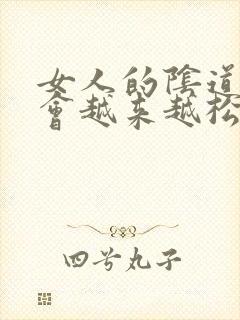 女人的陰道
會越来越松
四号丸子